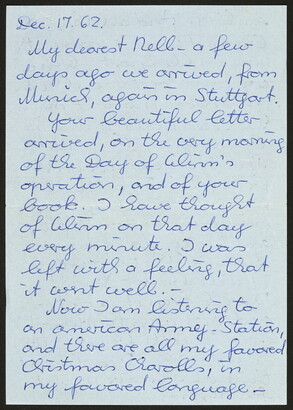 Dec. 17. 62.
My dearest Nell - a few
days ago we arrived, from
Munich, again in Stuttgart.
Your beautiful letter
arrived, on the very morning
of the Day of Wim's
operation, and of your
book. I have thought
of Wim on that day
every minute. I was
left with a feeling, that
it went well. -
Now I am listening to
an american Army-Station,
and there are all my favored
Christmas Charolls, in
my favored language -